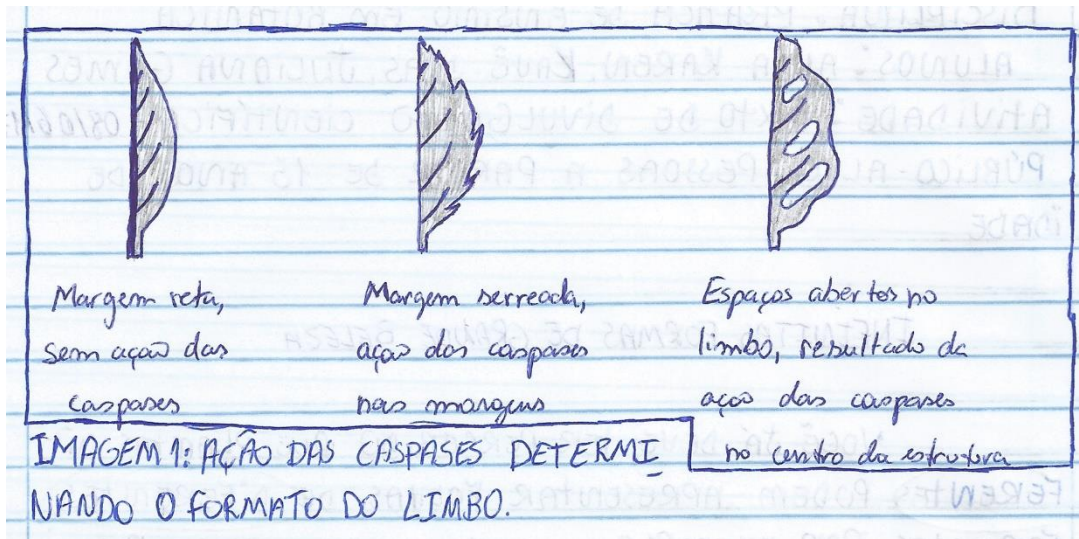 Margem reta,
sem ação das
caspases
Margem serreada,
ação das caspases
nas margens
Espaços abertos no
limbo, resultado da
ação das caspases
no centro da estrutura
IMAGEM 1: AÇÃO DAS CASPASES DETERMI
NANDO O FORMATO DO LIMBO.